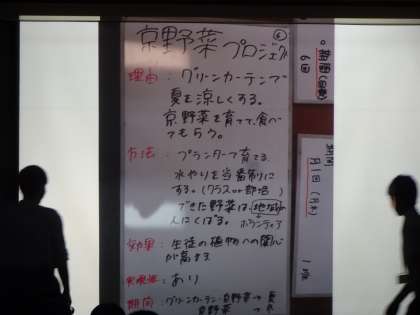 京野菜プロジェクト
④
理由：グリーンカーテンで
夏を涼しくする。
京野菜を育てて、食べ
てもらう。
方法：プランターで育てる
水やりを当番制に
する。(クラスor部活)
できた野菜は、地域の
人にくばる。
ボランティア
効果：生徒の植物への関心
が高まる
実現性：あり
期間：グリーンカーテン・京野菜→夏
京野菜→
期間
6回
期間
月1回(月末)